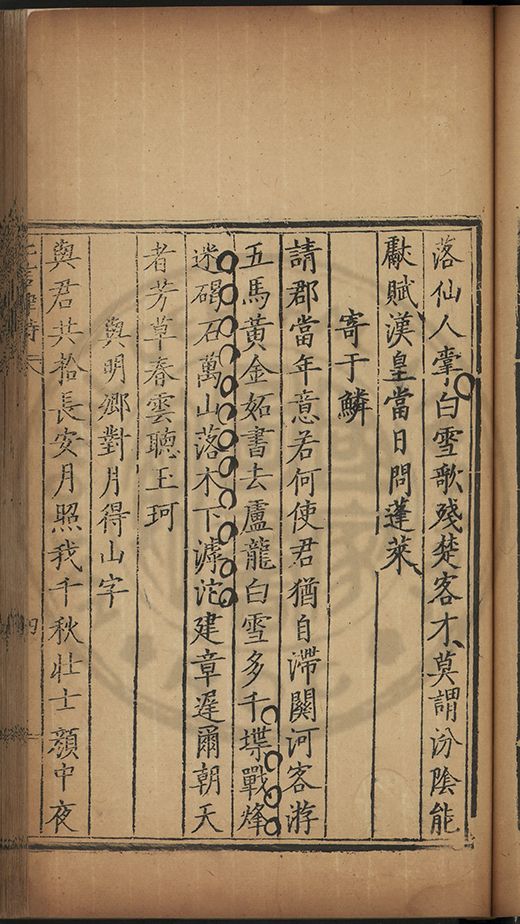 落仙人掌白雪歌殘楚客才莫謂汾陰能
獻賦漢皇當日問蓬萊
寄于鱗
請郡當年意若何使君猶自滯關河客游
五馬黃金妬書去盧龍白雪多千堞戰烽
迷碣石萬山落木下滹沱建章遲爾朝天
者芳草春雲聽玉珂
與明卿對月得山字
與君共拾長安月照我千秋壯士顏中夜
七言律詩
四